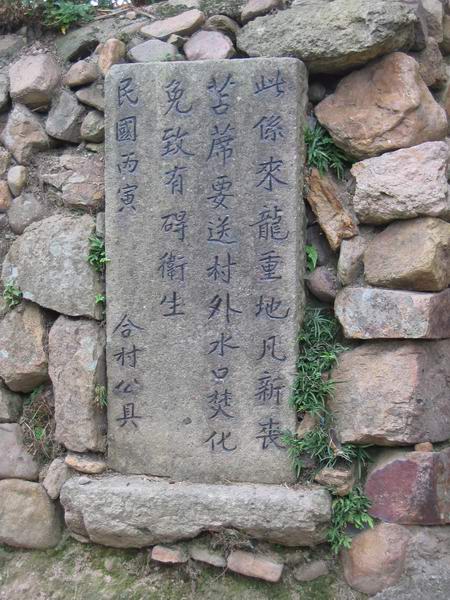 此係來龍重地凡新喪
苫蓆要送村外水口焚化
免致有碍衛生
民國丙寅 合村公具